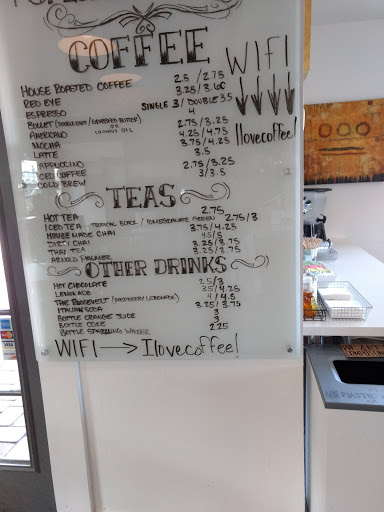 COFFEE
WIFI
HOUSE ROASTED COFFEE 2.5 / 2.75
RED EYE 3.25 / 3.60
ESPRESSO SINGLE 3 / DOUBLE 3.5
BULLET
COCONUT OIL
AMERICANO 2.75 / 3.25
MOCHA 4.25 / 4.75
LATTE 3.75 / 4.25
CAPPUCCINO 3.5
ICED COFFEE 2.75 / 3.25
COLD BREW 3 / 3.5
Ilovecoffee!
TEAS
HOT TEA 2.75
ICED TEA TROPICAL BLACK / POMEGRANATE GREEN 2.75 / 3
HOUSE MADE CHAI 3.75 / 4.25
DIRTY CHAI 4.5 / 5
THAI TEA 3.25 / 3.75
ARNOLD PALMER 3.25 / 3.75
OTHER DRINKS
HOT CHOCOLATE 2.5 / 3
LEMONADE 3.5 / 4.25
THE ROOSEVELT (RASPBERRY LEMONADE) 4 / 4.5
ITALIAN SODA 3.25 / 3.75
BOTTLE ORANGE JUICE 3
BOTTLE COKE 3
BOTTLE SPARKLING WATER 2.25
WIFI → Ilovecoffee!
VISA